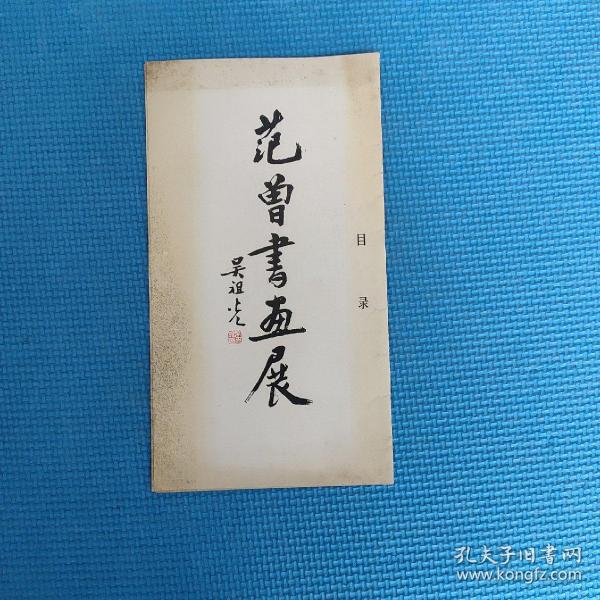 范曾書画展
吴祖光
目录
孔夫子旧書网
www.kongfz.com